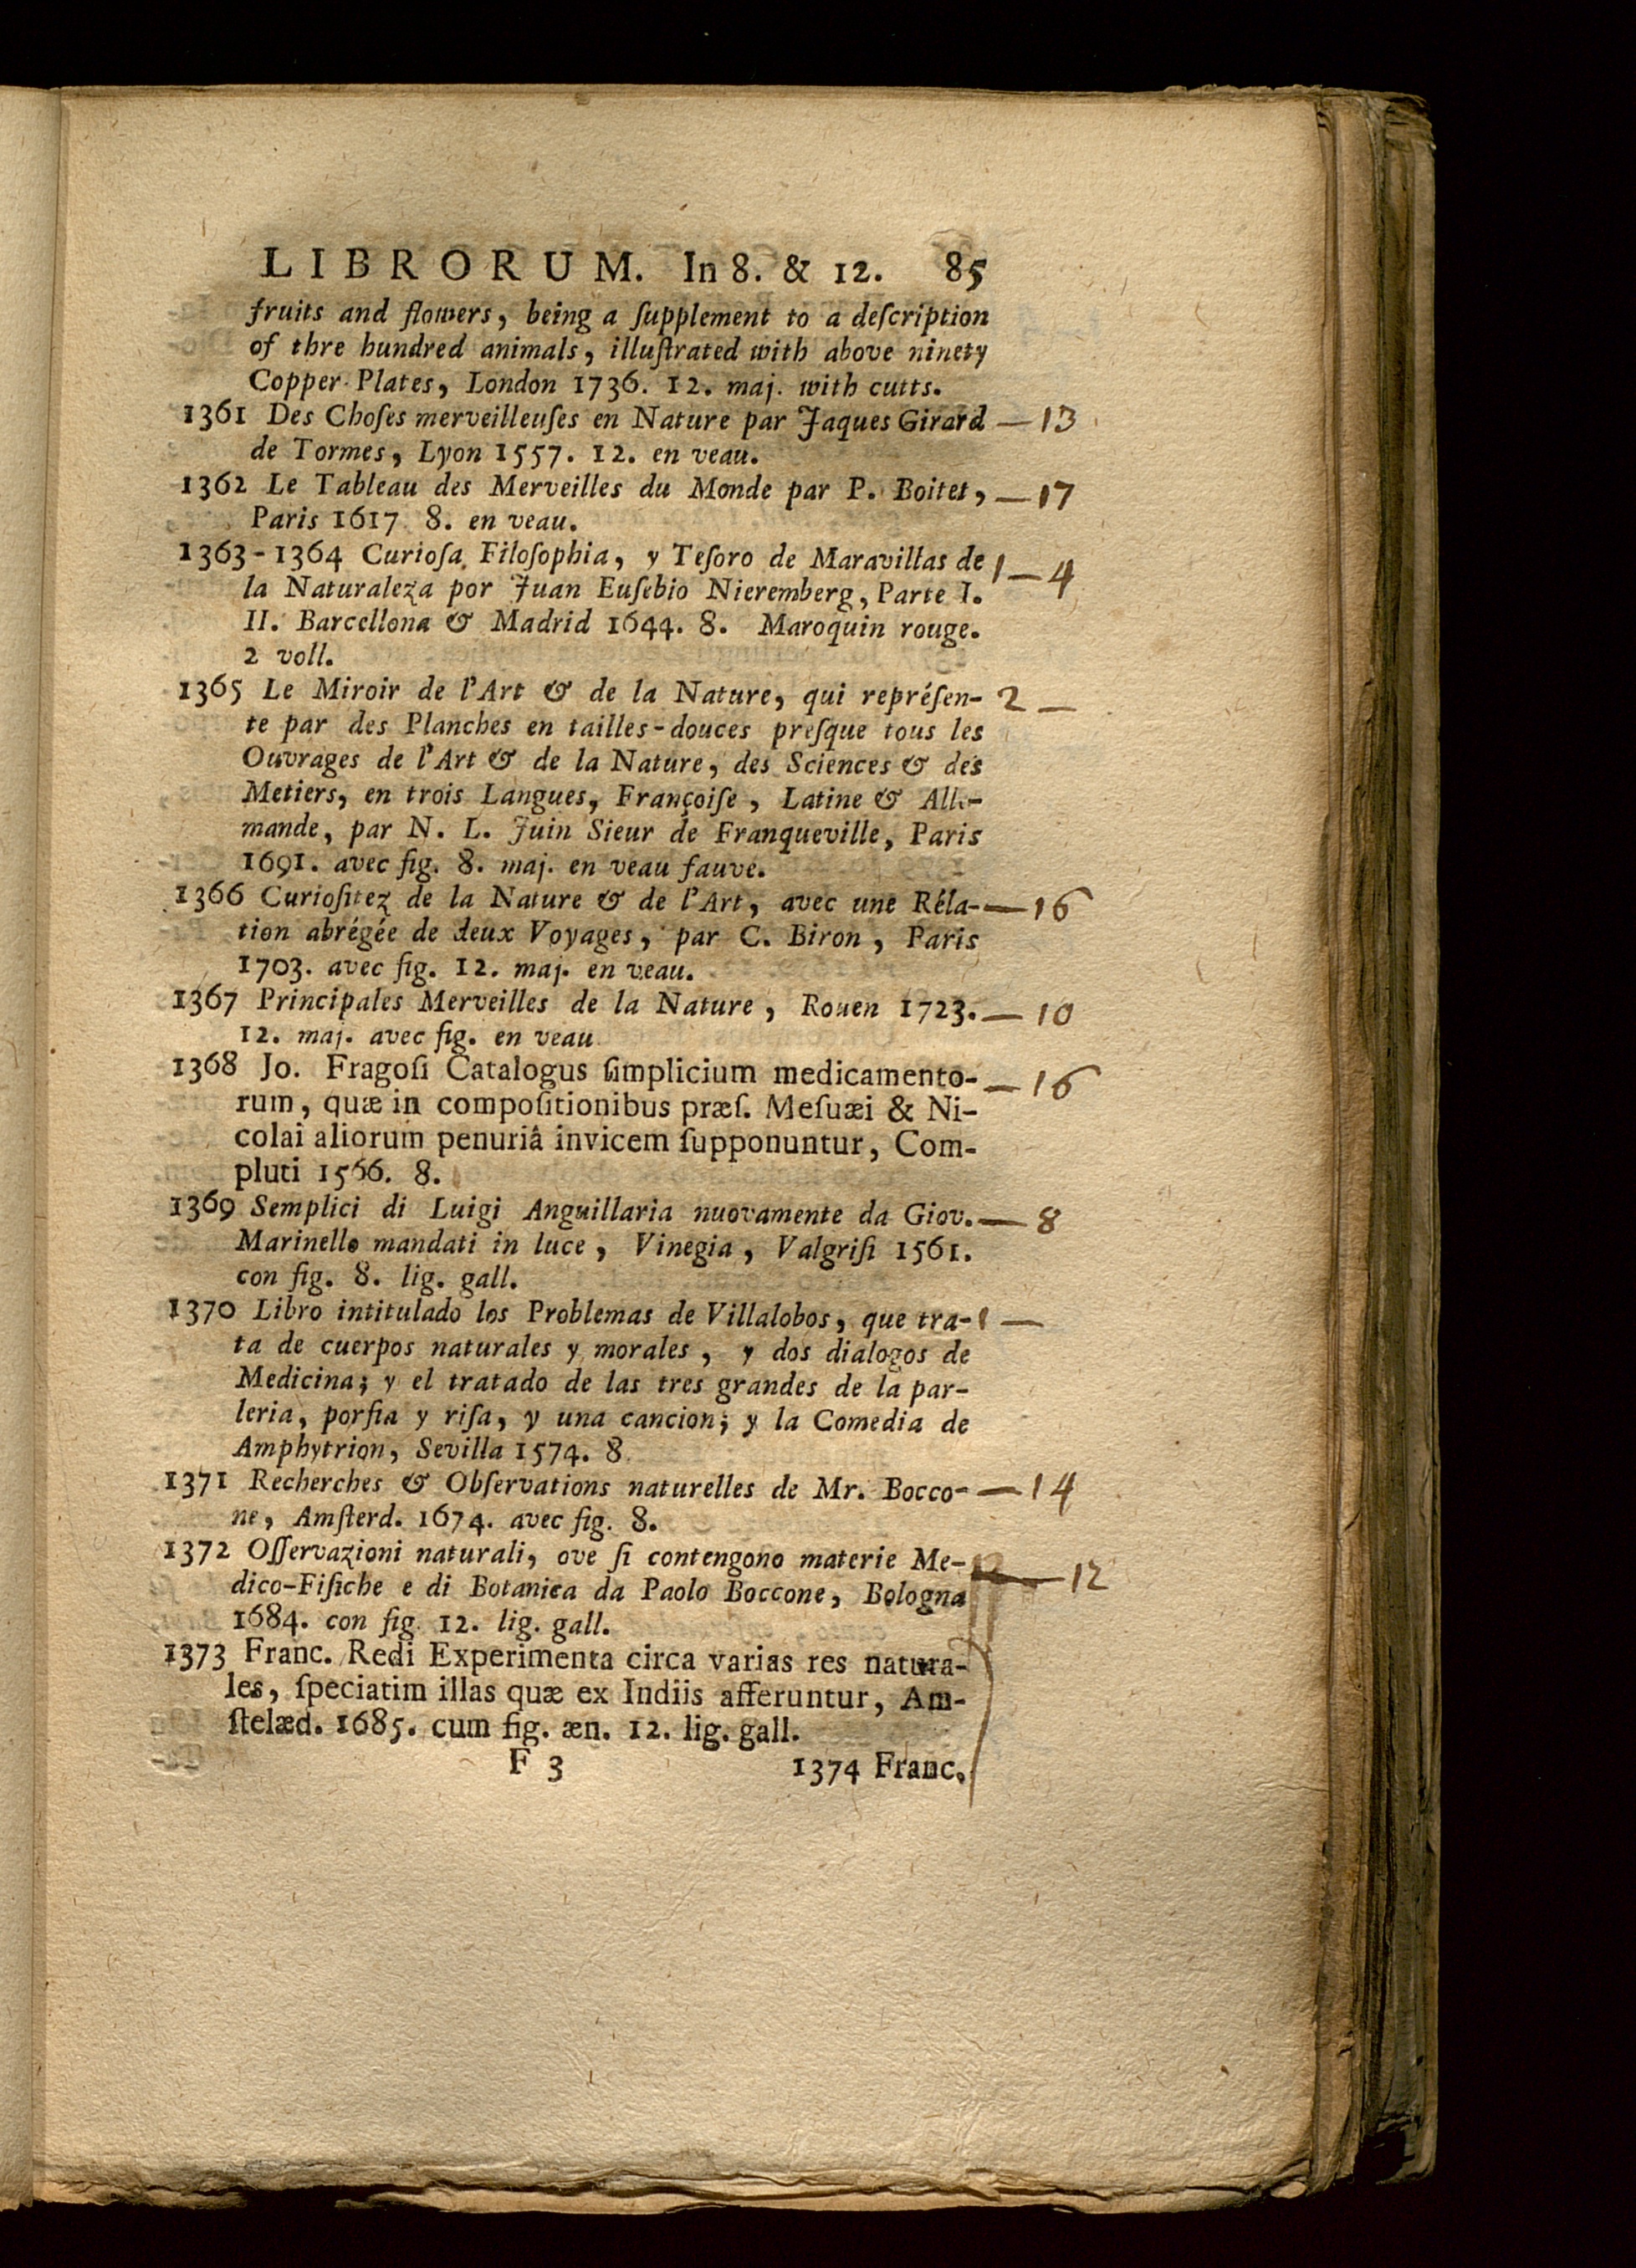 LIBRORUM. In 8. & 12. 85
fruits and flowers, being a ſupplement to a deſcription
of thre hundred animals, illuſtrated with above ninety
Copper Plates, London 1736. 12. maj. with cutts.
1361 Des Choſes merveilleuſes en Nature par Jaques Girard — 13
de Tormes, Lyon 1557. 12. en veau.
1362 Le Tableau des Merveilles du Monde par P. Boitet, — 17
Paris 1617 8. en veau.
1363-1364 Curioſa Filoſophia, y Teſoro de Maravillas de 1 — 4
la Naturaleza por Juan Euſebio Nieremberg, Parte I.
II. Barcellona & Madrid 1644. 8. Maroquin rouge.
2 voll.
1365 Le Miroir de l'Art & de la Nature, qui repréſen- 2 —
te par des Planches en tailles-douces preſque tous les
Ouvrages de l'Art & de la Nature, des Sciences & des
Metiers, en trois Langues, Françoiſe, Latine & Alle-
mande, par N. L. Juin Sieur de Franqueville, Paris
1691. avec fig. 8. maj. en veau fauve.
1366 Curioſitez de la Nature & de l'Art, avec une Réla- — 16
tion abrégée de deux Voyages, par C. Biron, Paris
1703. avec fig. 12. maj. en veau.
1367 Principales Merveilles de la Nature, Rouen 1723. — 10
12. maj. avec fig. en veau
1368 Jo. Fragoſi Catalogus ſimplicium medicamento- — 16
rum, quæ in compoſitionibus præſ. Meſuæi & Ni-
colai aliorum penuriâ invicem ſupponuntur, Com-
pluti 1566. 8.
1369 Semplici di Luigi Anguillaria nuovamente da Giov. — 8
Marinello mandati in luce, Vinegia, Valgriſi 1561.
con fig. 8. lig. gall.
1370 Libro intitulado los Problemas de Villalobos, que tra- 1 —
ta de cuerpos naturales y morales, y dos dialogos de
Medicina; y el tratado de las tres grandes de la par-
leria, porfia y riſa, y una cancion; y la Comedia de
Amphytrion, Sevilla 1574. 8.
1371 Recherches & Obſervations naturelles de Mr. Bocco- — 14
ne, Amſterd. 1674. avec fig. 8.
1372 Oſſervazioni naturali, ove ſi contengono materie Me- — 12
dico-Fiſiche e di Botanica da Paolo Boccone, Bologna
1684. con fig. 12. lig. gall.
1373 Franc. Redi Experimenta circa varias res natura-
les, ſpeciatim illas quæ ex Indiis afferuntur, Am-
ſtelæd. 1685. cum fig. æn. 12. lig. gall.
F 3 1374 Franc.